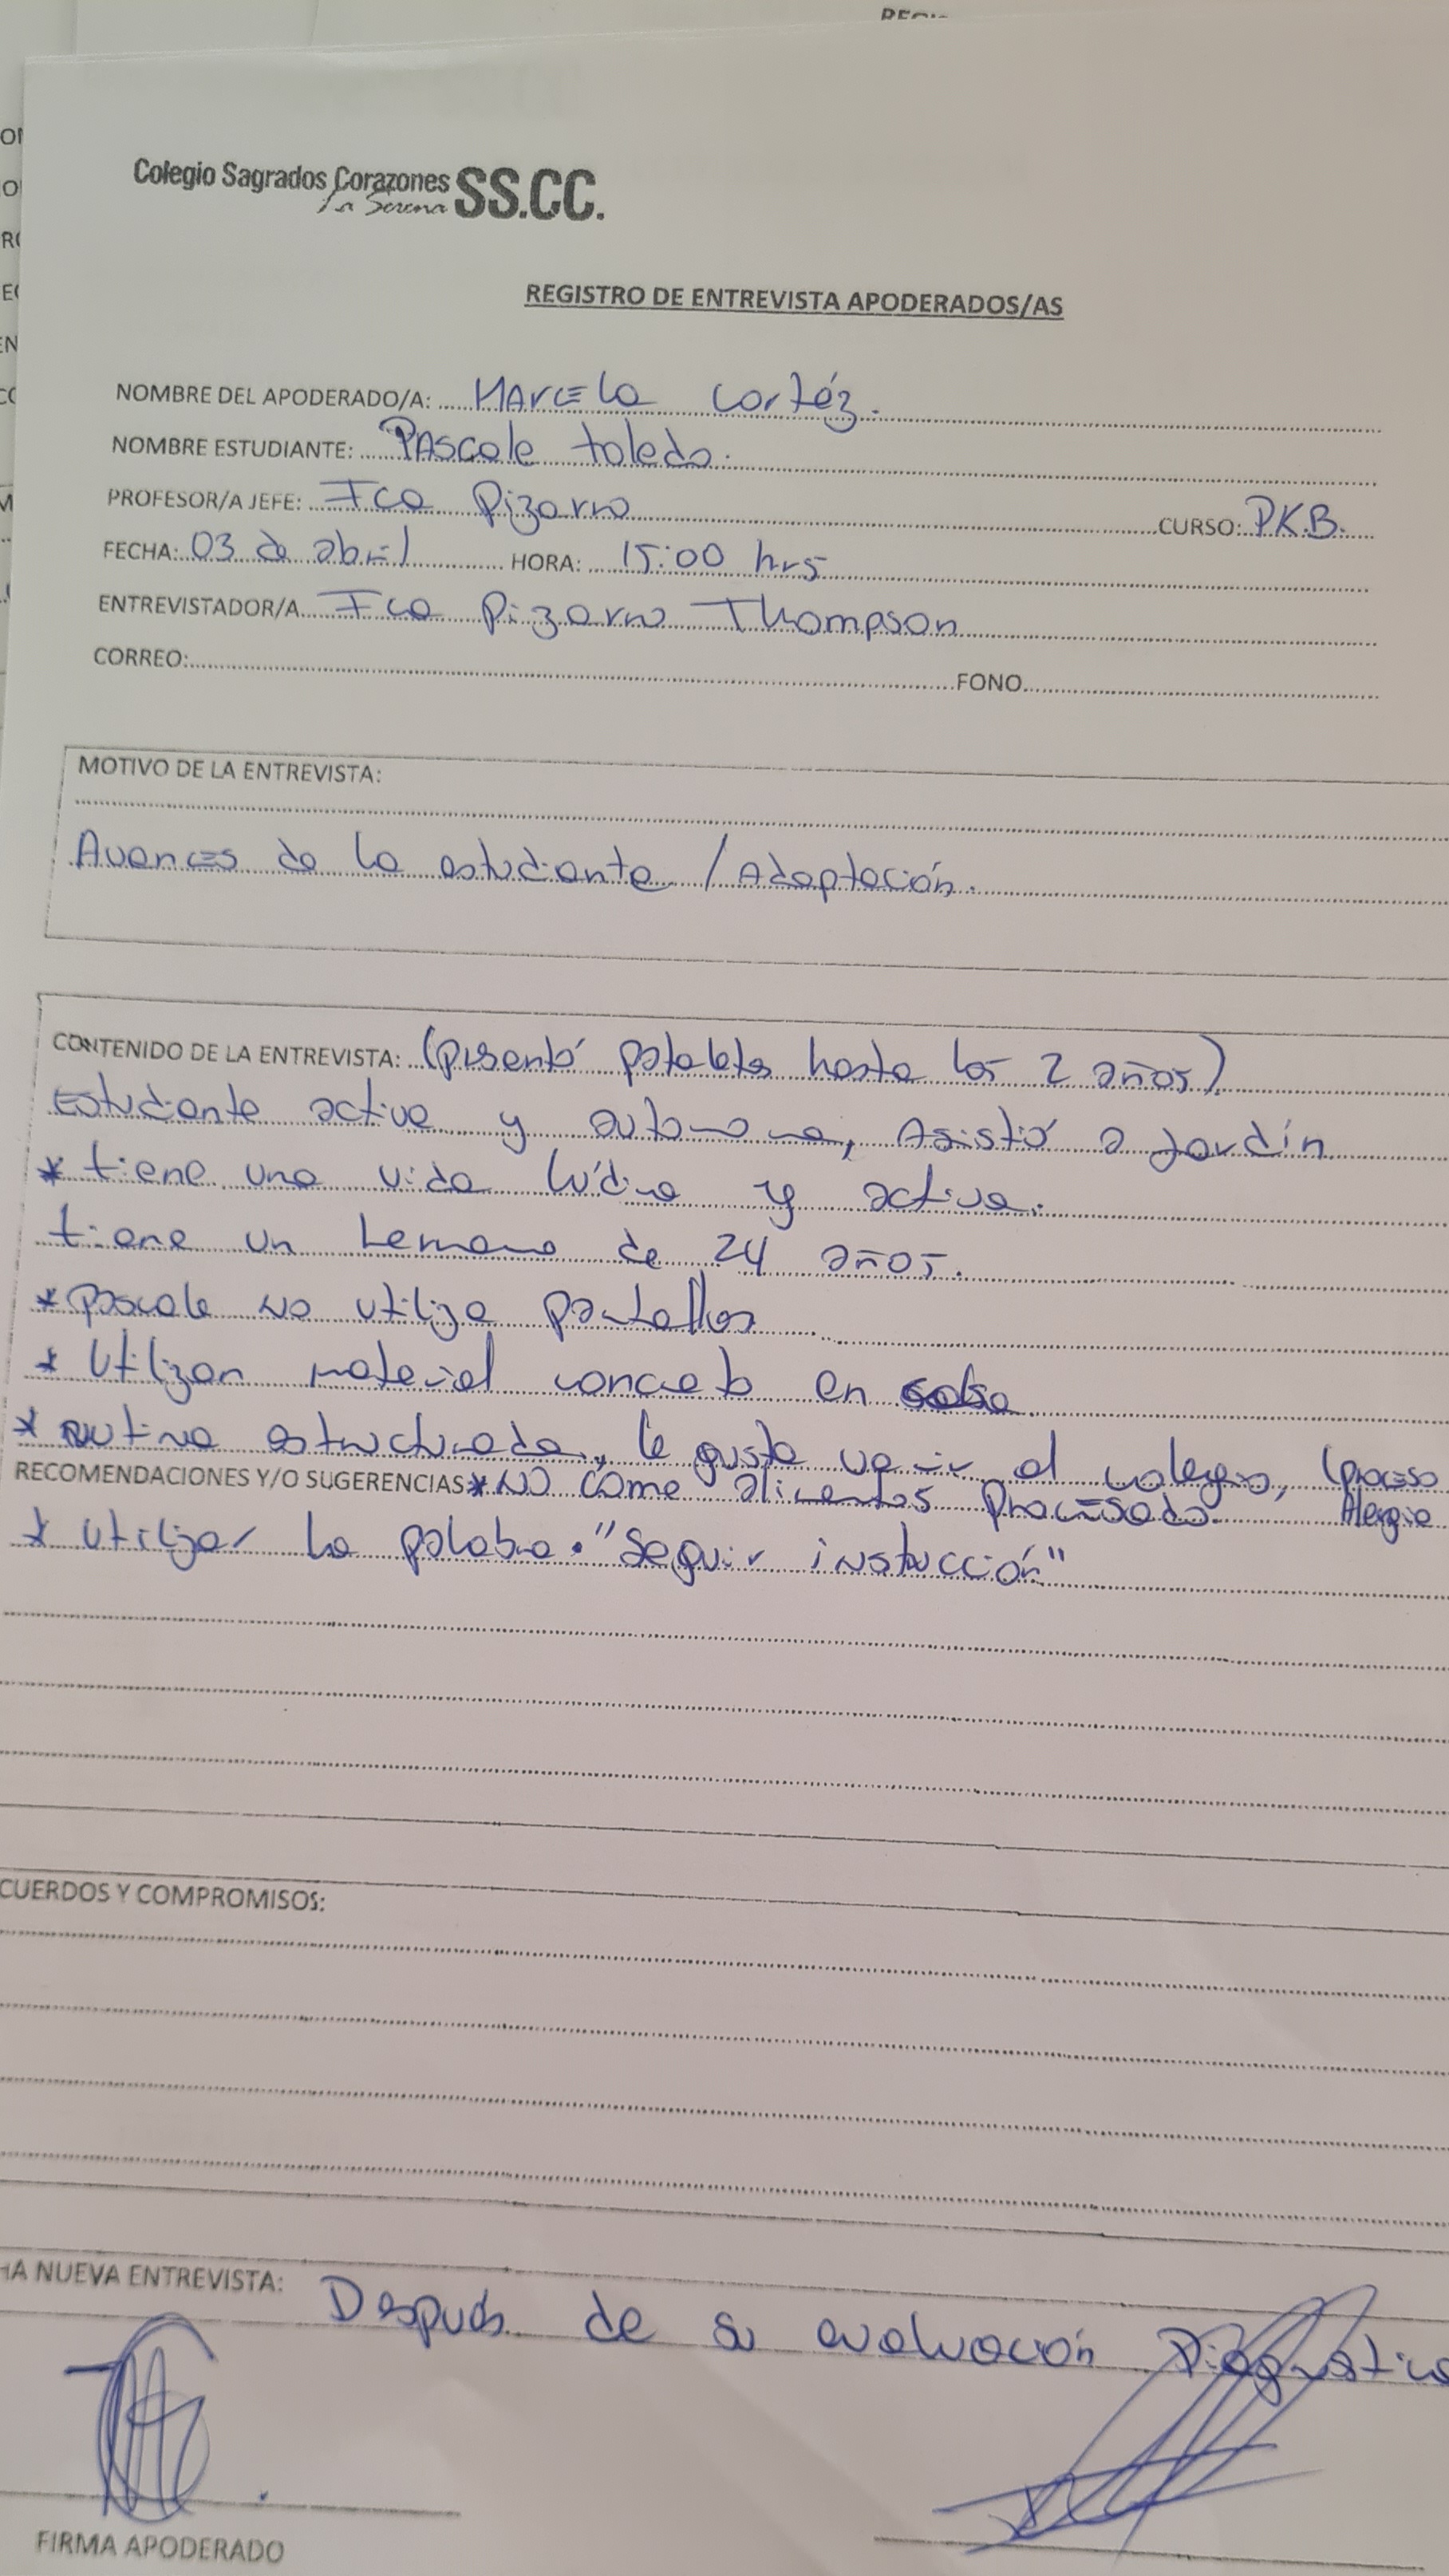 Colegio Sagrados Corazones SS.CC.
La Serena
REGISTRO DE ENTREVISTA APODERADOS/AS
NOMBRE DEL APODERADO/A: Marcela Cortéz.
NOMBRE ESTUDIANTE: Pascale Toledo.
PROFESOR/A JEFE: Fca Pizarro CURSO: PKB.
FECHA: 03 de abril HORA: 15:00 hrs
ENTREVISTADOR/A Fca Pizarro Thompson
CORREO: FONO
MOTIVO DE LA ENTREVISTA:
Avances de la estudiante / Adaptación.
CONTENIDO DE LA ENTREVISTA: (presentó pataleta hasta los 2 años)
Estudiante activa y autonoma, Asistió a Jardín
* tiene una vida lúdica y activa.
tiene un hermano de 24 años.
* Pascale no utiliza pantallas
* Utilizan material concreto en
* rutina estructurada, le gusta venir al colegio, (proceso
RECOMENDACIONES Y/O SUGERENCIAS * NO come alimentos procesado. Alergia
* utilizar la palabra. "Seguir instrucción"
CUERDOS Y COMPROMISOS:
HA NUEVA ENTREVISTA: Después de su evaluación Diagnostica
FIRMA APODERADO